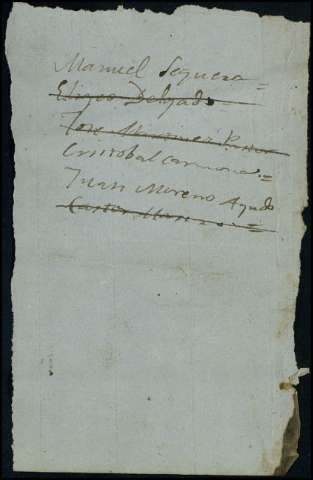 Manuel Sequera =
Eliseo Delgado
Jose
Cristobal Carmona =
Juan Moreno Agudo
Castor